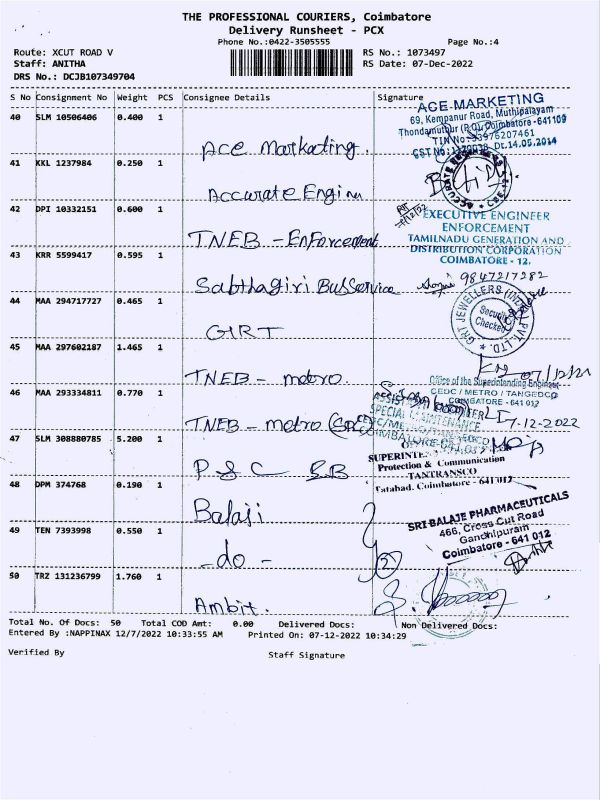 THE PROFESSIONAL COURIERS, Coimbatore
Delivery Runsheet - PCX
Phone No.:0422-3505555
Page No.:4
Route: XCUT ROAD V
RS No.: 1073497
Staff: ANITHA
RS Date: 07-Dec-2022
DRS No.: DCJB107349704
S No Consignment No Weight PCS Consignee Details Signature
40 SLM 10506406 0.400 1
Ace Marketing.
ACE MARKETING
69, Kempanur Road, Muthipalayam
Thondamuthur (P.O), Coimbatore -641109
TIN No: 33976207461
Dt.14.05.2014
41 KKL 1237984 0.250 1
Accurate Engin
42 DPI 10332151 0.600 1
TNEB - Enforcement
EXECUTIVE ENGINEER
ENFORCEMENT
TAMILNADU GENERATION AND
DISTRIBUTION CORPORATION
COIMBATORE - 12.
43 KRR 5599417 0.595 1
Sabthagiri Bus Service
9847217282
44 MAA 294717727 0.465 1
GIRT
GRT JEWELLERS (INDIA) PVT. LTD.
Security
Checked
45 MAA 297602187 1.465 1
TNEB - metro.
07/12/22
Office of the Superintending Engineer
CEDC / METRO / TANGEDCO
COIMBATORE - 641 012
46 MAA 293334811 0.770 1
TNEB - metro
SPECIAL MAINTENANCE
7-12-2022
47 SLM 308880785 5.200 1
P & C
Protection & Communication
TANTRANSCO
Tatabad, Coimbatore - 641 012
48 DPM 374768 0.190 1
Balaji
SRI BALAJE PHARMACEUTICALS
466, Cross Cut Road
Gandhipuram
Coimbatore - 641 012
49 TEN 7393998 0.550 1
- do -
2
50 TRZ 131236799 1.760 1
Ambit.
Total No. Of Docs: 50 Total COD Amt: 0.00 Delivered Docs: Non Delivered Docs:
Entered By :NAPPINAX 12/7/2022 10:33:55 AM Printed On: 07-12-2022 10:34:29
Verified By Staff Signature